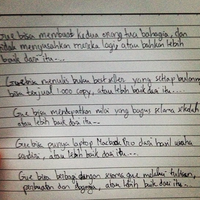 Gue bisa membuat kedua orang tua bahagia, dan
tidak menyusahkan mereka lagi, atau bahkan lebih
baik dari itu....
Gue bisa menulis buku best seller yang setiap bulannya
bisa terjual 1.000 copy, atau lebih baik dari itu....
Gue bisa mendapatkan nilai yang bagus selama sekolah
atau lebih baik dari itu...
Gue bisa punya laptop Macbook Pro dari hasil usaha
sendiri, atau lebih baik dari itu....
Gue bisa berbagi dengan sesama gue melalui tulisan,
perbuatan dan, atau lebih baik dari itu...